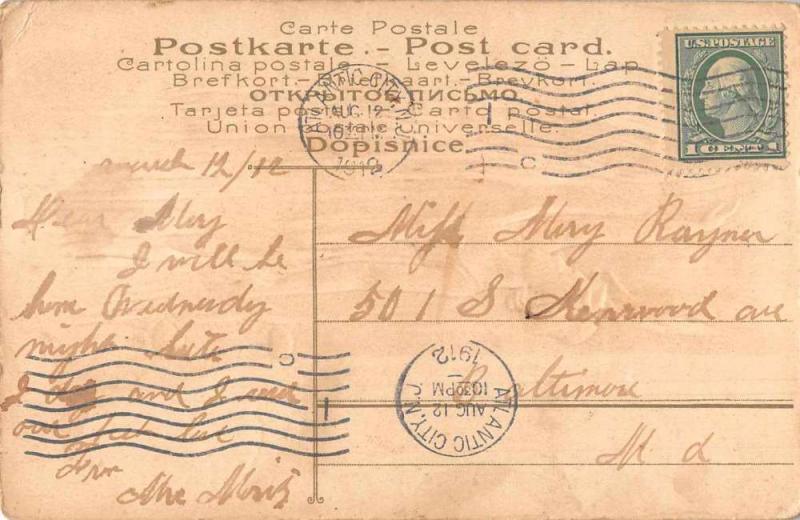 Carte Postale
Postkarte. - Post card.
Cartolina postale - Levelezö - Lap
Brefkort. - Briefkaart. - Brevkort
ОТКРЫТОЕ ПИСЬМО
Tarjeta postal - Carto postal
Union postale universelle.
Dopisnice.
U.S. POSTAGE
1 CENT 1
ATLANTIC CITY, N.J.
AUG 12
1912
C
1
march 12/12
Dear Mary
I will be
home Wednesday
night
I and I send
our love
From
Mrs Moritz
Miss Mary Rayner
501 S Kenwood ave
Baltimore
Md
C
1
ATLANTIC CITY, N.J.
AUG 12
1030PM
1912